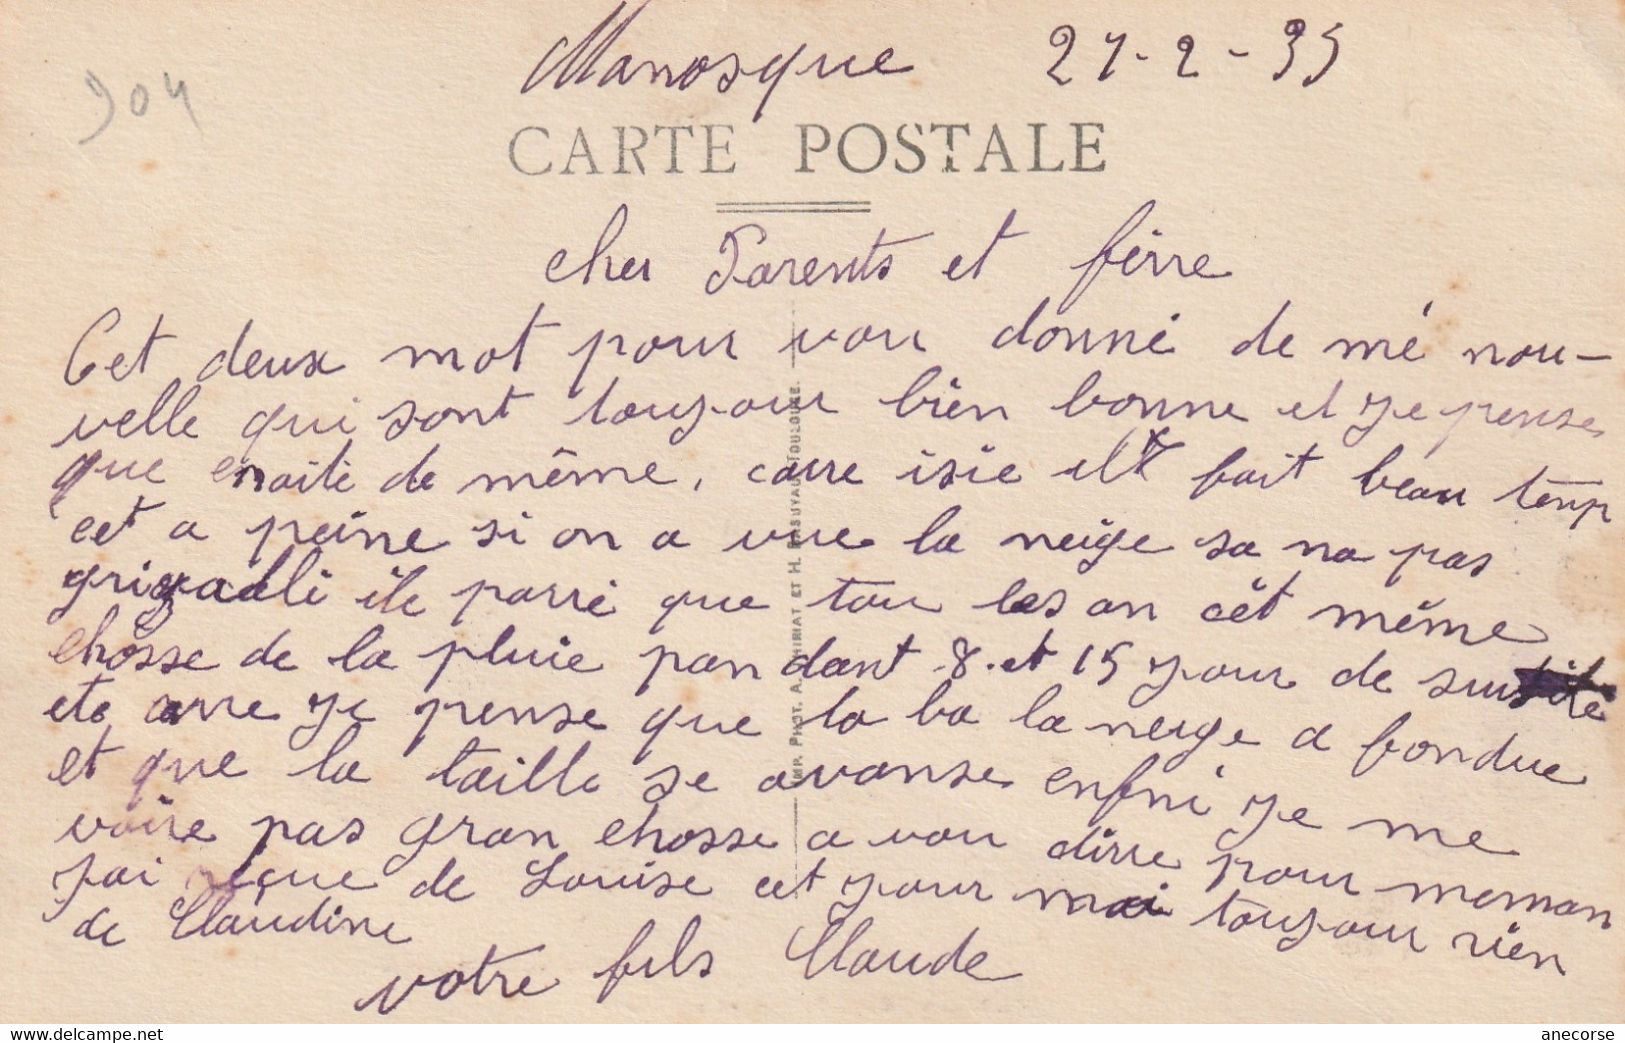 904
Manosque 27-2-35
CARTE POSTALE
cher Parents et férre
Cet deux mot pour vou donné de mé nou-
velle qui sont toujour bien bonne et je pense
que de même, carre isie il fait beau temp
cet a peine si on a vue la neige sa na pas
ile parré que tou les an cèt même
chosse de la pluie pandant 8 et 15 jour de suite
carre je pense que la ba la neige a fondue
et que la taille se avanse enfni je me
voire pas gran chosse a vou dirre pour moman
jai reçue de Louise cet jour toujour rien
de Claudine
votre fils Claude
IMP. PHOT. A. THIRIAT ET H. BASUYAU, TOULOUSE.
www.delcampe.net
anecorse